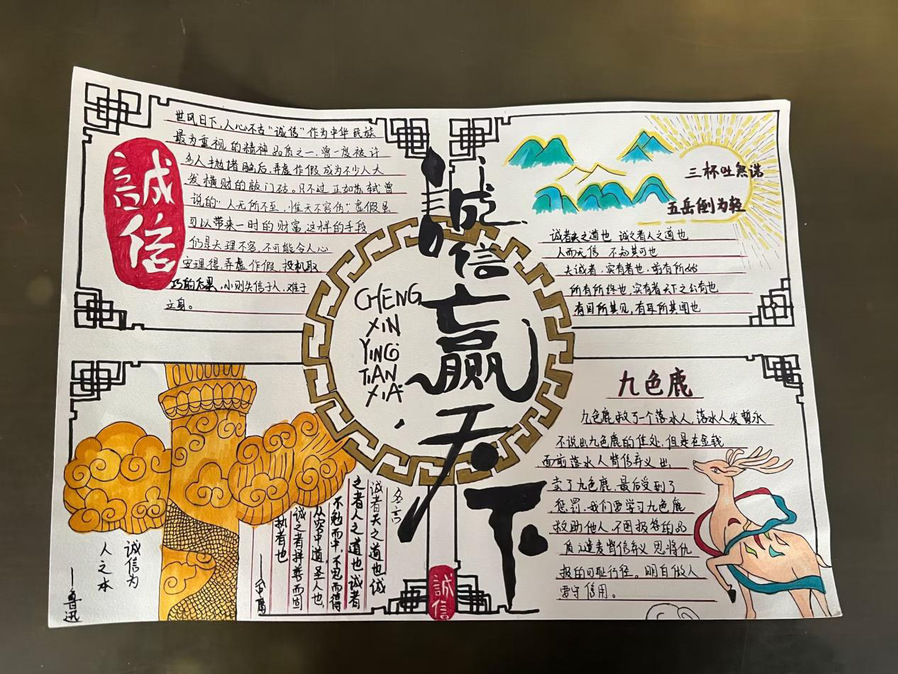 誠信
世风日下,人心不古"诚信"作为中华民族
最为重视的精神品质之一,曾一度被许
多人抛诸脑后,弄虚作假成为不少人大
发横财的敲门砖。只不过,正如苏轼曾
说的"人无所不至,惟天不容伪"虚假是
可以带来一时的财富,这样的手段
们是天理不容,不可能令人心
安理得,弄虚作假,投机取
巧的后果,小则失信于人,难于
立身。
三杯吐然诺
五岳倒为轻
诚者天之道也 诚之者人之道也
人而无信 不知其可也
夫诚者,实有者也,前有所始
所有所终也,实有者,天下之公有也
有目所共见,有耳所共闻也
CHENG
XIN
YING
TIAN
XIA
诚信赢天下
诚信为
人之本
——鲁迅
名言
诚者天之道也诚
之者人之道也诚者
不勉而中,不思而得
从容中道,圣人也
诚之者择善而固
执者也
誠信
九色鹿
九色鹿救了一个落水人,落水人发誓永
不说出九色鹿的住处,但是在金钱
面前落水人背信弃义,出
卖了九色鹿,最后受到了
惩罚,我们要学习九色鹿
救助他人,不图报答的品
质,谴责背信弃义,恩将仇
报的可耻行径。明白做人
要守信用。